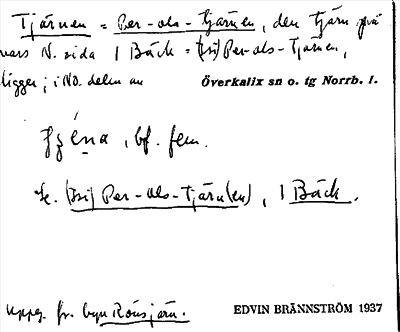 Tjärnen = Per-ols-tjärnen, den tjärn på
vars N. sida 1 Bäck = (isi) Per-ols-Tjärnen,
ligger; i NO. delen av
Överkalix sn o. tg Norrb. l.
bf. fem.
Se. (isi) Per-ols-Tjärn(en), 1 Bäck.
uppg. fr. byn Rönsjärn.
EDVIN BRÄNNSTRÖM 1937